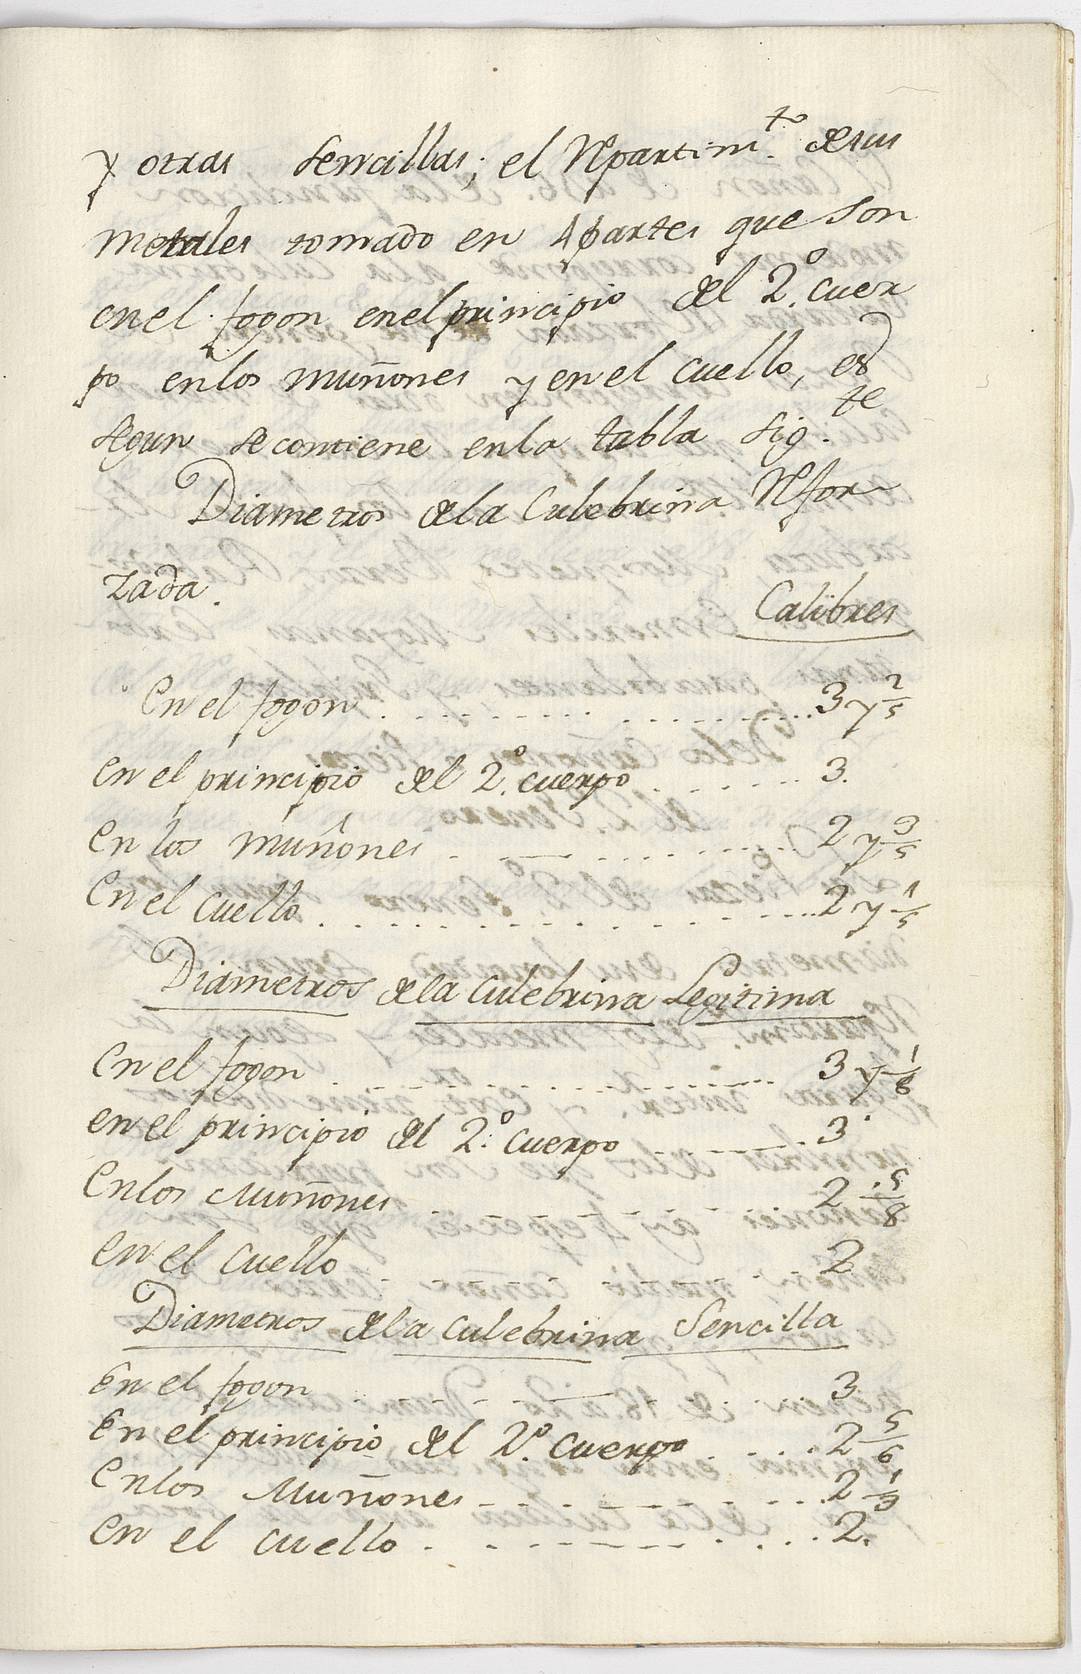 y otras sencillas; el Repartim.to de sus
metales tomado en 4 partes que son
en el fogon en el principio del 2.o cuer
po en los muñones y en el cuello, es
segun se contiene en la tabla sig.te
Diametros de la Culebrina Refor
zada.
Calibres
En el fogon . . . . . . . . . . . . 3 y 2/5
en el principio del 2.o cuerpo . . . . . . 3.
En los muñones . . . . . . . . . . 2 y 3/5
En el cuello . . . . . . . . . . . . 2 y 1/5
Diametros de la culebrina Legitima
En el fogon . . . . . . . . . . . . 3 y 1/8
en el principio del 2.o cuerpo . . . . . . 3
En los Muñones . . . . . . . . . . 2 5/8
en el cuello . . . . . . . . . . . . 2
Diametros de la culebrina Sencilla
En el fogon . . . . . . . . . . . . 3
En el principio del 2.o cuerpo . . . . 2 5/6
En los Muñones . . . . . . . . . . 2 1/3
en el cuello . . . . . . . . . . . . 2.